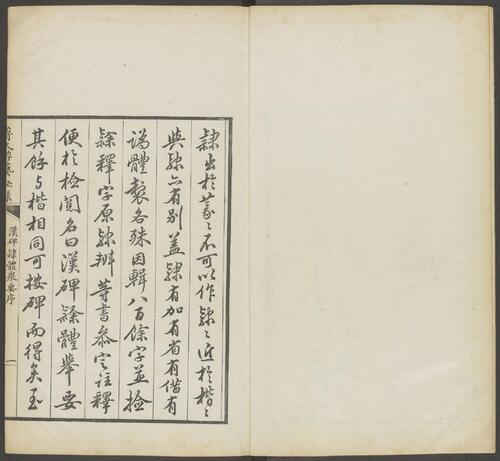 隸出於篆〻不可以作隸〻近於楷〻
與隸亦有別蓋隸有加有省有借有
譌體製各殊因輯八百餘字並撿
隸釋字原隸辨等書參定註釋
便於檢閱名曰漢碑隸體舉要
其餘与楷相同可按碑而得矣至
漢碑隸體舉要序
一